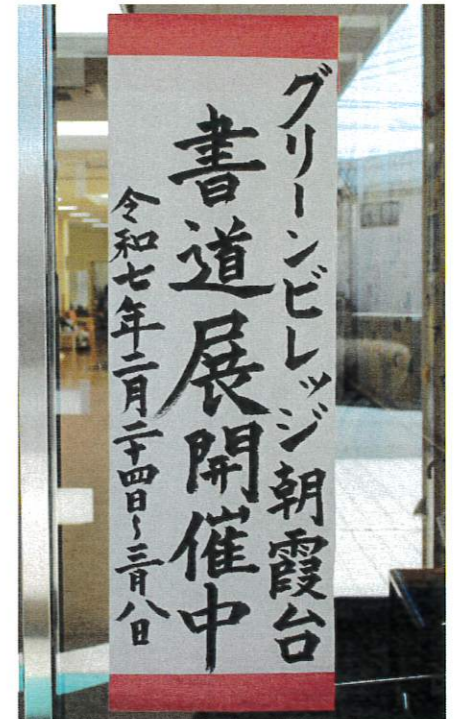 グリーンビレッジ朝霞台
書道展開催中
令和七年二月二十四日～三月八日